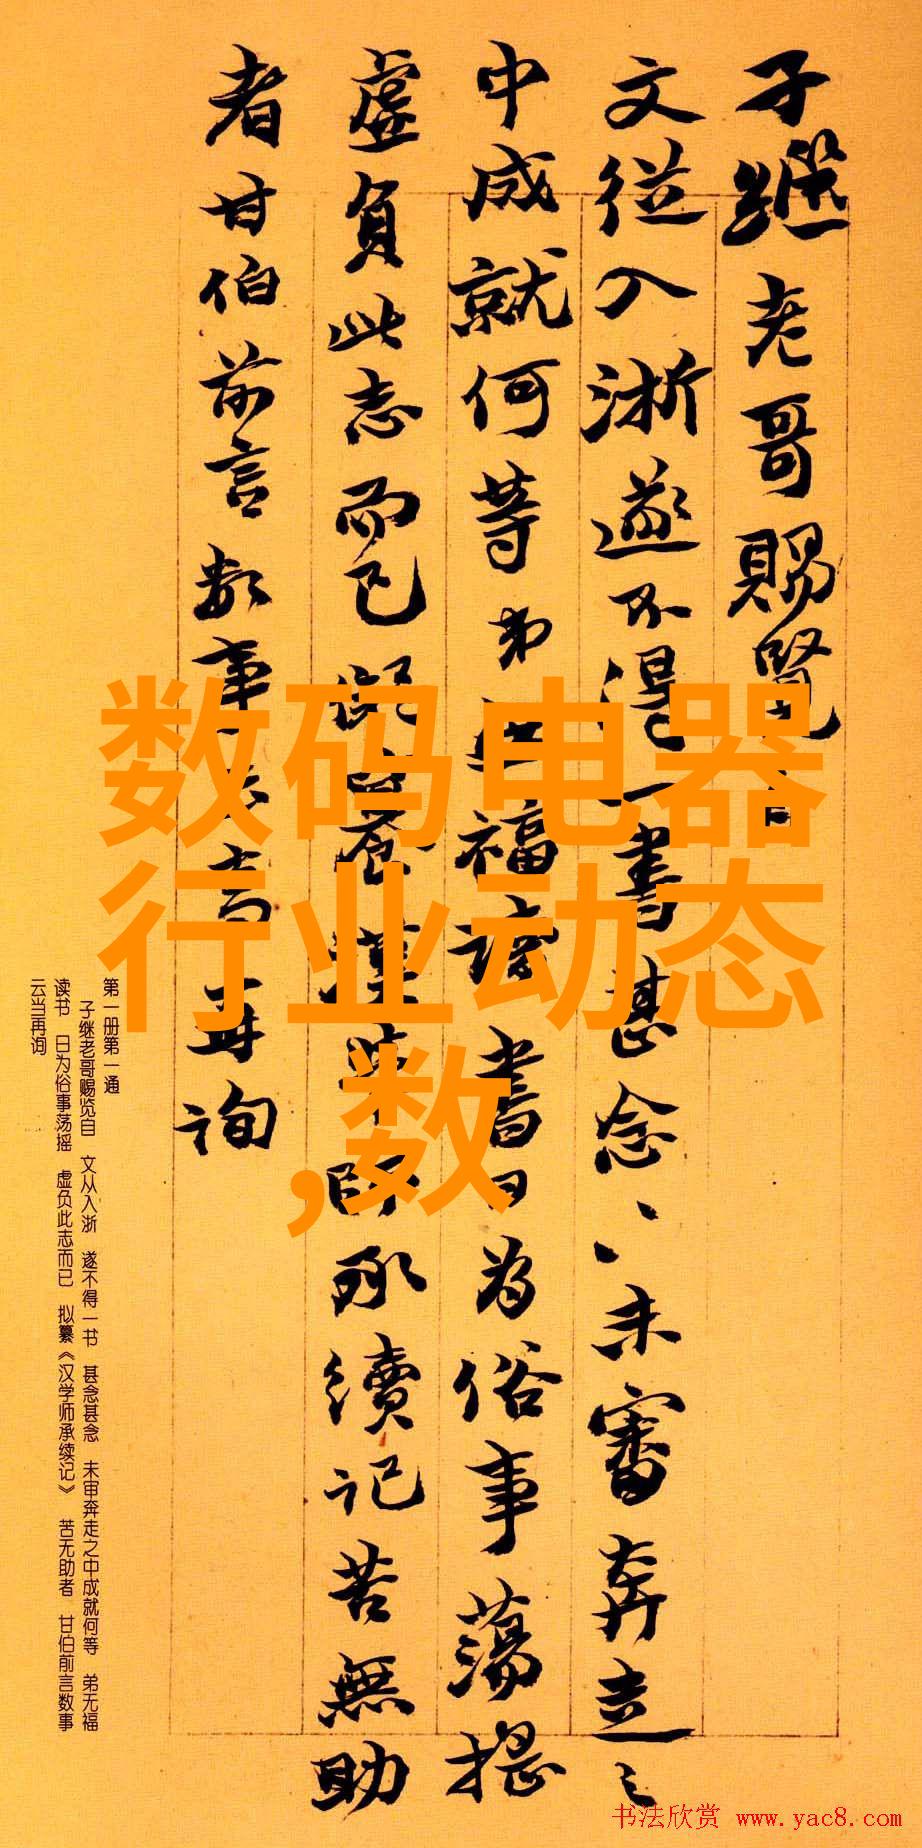 子繼老哥賜覽自
文從入浙遂不得一書甚念〻未審奔走之
中成就何等弟无福讀書日為俗事蕩搖
虛負此志而已擬纂漢學師承續記苦無助
者甘伯前言數事云當再詢
数码电器
行业动态
,数
第一册第一通
子继老哥赐览自 文从入浙 遂不得一书 甚念甚念 未审奔走之中成就何等 弟无福
读书 日为俗事荡摇 虚负此志而已 拟纂《汉学师承续记》 苦无助者 甘伯前言数事
云当再询
书法欣赏 www.yac8.com